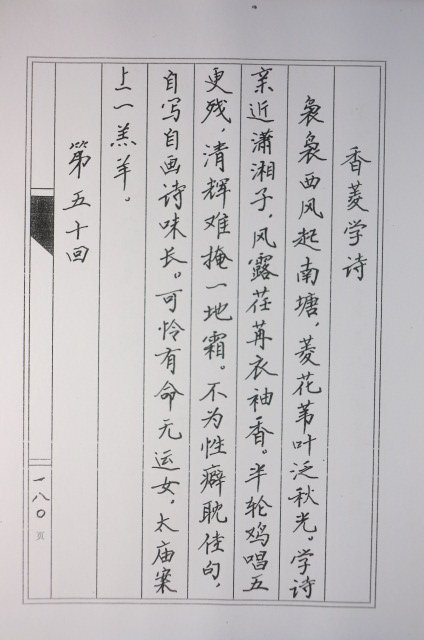 香菱学诗
袅袅西风起南塘，菱花苇叶泛秋光。学诗
亲近潇湘子，风露荏苒衣袖香。半轮鸡唱五
更残，清辉难掩一地霜。不为性癖耽佳句，
自写自画诗味长。可怜有命无运女，太庙案
上一羔羊。
第五十回
一八〇
页